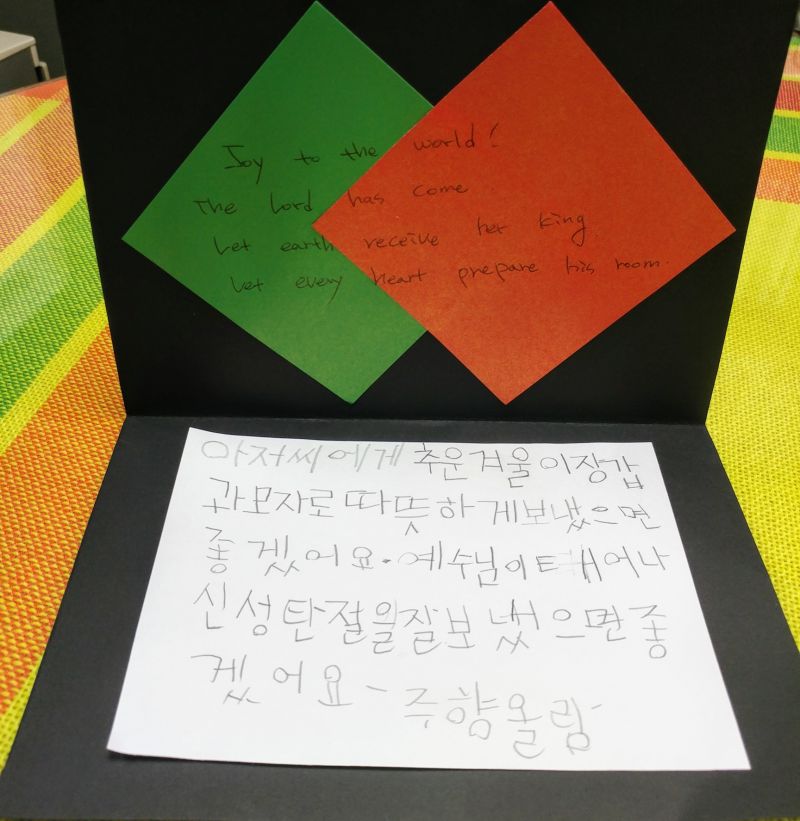 Joy to the world!
The Lord has come
Let earth receive her king.
Let every heart prepare his room.
아저씨에게 추운겨울이장갑
과모자로따뜻하게보냈으면
좋겠어요. 예수님이태어나
신성탄절을잘보냈으면좋
겠어요~ 주향올림